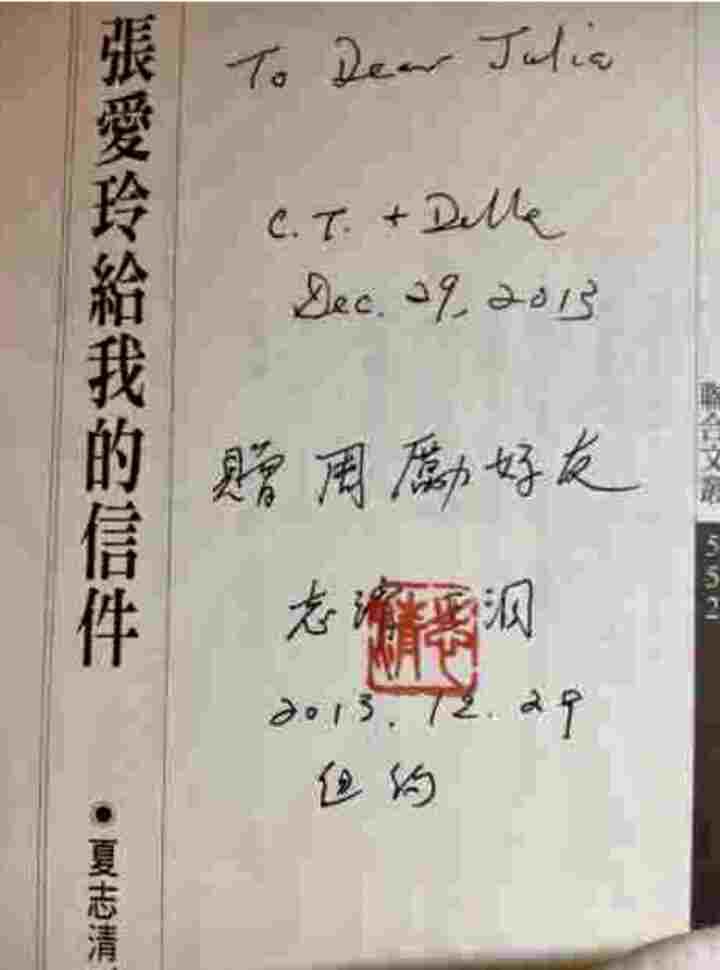 張愛玲給我的信件
●夏志清
To Dear Julia
C. T. + Della
Dec. 29, 2013
贈 周 勵 好 友
志清 王洞
2013. 12. 29
纽约
聯合文叢
552